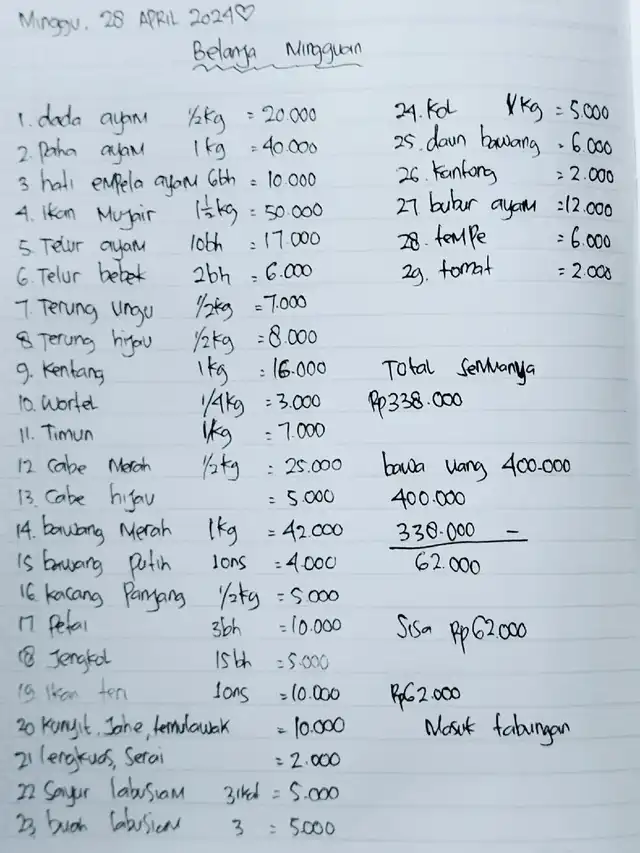 Minggu, 28 APRIL 2024♡
Belanja Mingguan
1. dada ayam 1/2kg = 20.000
2. Paha ayam 1kg = 40.000
3 hati empela ayam 6bh = 10.000
4. Ikan Mujair 1 1/2kg = 50.000
5. Telur ayam 10bh = 17.000
6. Telur bebek 2bh = 6.000
7. Terung ungu 1/2kg = 7.000
8 Terung hijau 1/2kg = 8.000
9. Kentang 1kg = 16.000
10. Wortel 1/4kg = 3.000
11. Timun 1kg = 7.000
12 Cabe Merah 1/2kg = 25.000
13. Cabe hijau = 5.000
14. bawang Merah 1kg = 42.000
15 bawang putih 1ons = 4.000
16. Kacang Panjang 1/2kg = 5.000
17 Petai 3bh = 10.000
18 Jengkol 15bh = 5.000
19. Ikan teri 1ons = 10.000
20 Kunyit, Jahe, temulawak = 10.000
21 lengkuas, Serai = 2.000
22 Sayur labusiam 3ikat = 5.000
23. buah labusiam 3 = 5.000
24. Kol 1kg = 5.000
25. daun bawang = 6.000
26. Kantong = 2.000
27 bubur ayam = 12.000
28. tempe = 6.000
29. tomat = 2.000
Total semuanya
Rp338.000
bawa uang 400.000
400.000
338.000 -
62.000
Sisa Rp62.000
Rp62.000
Masuk tabungan